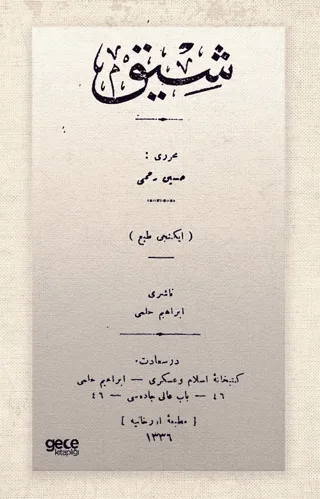 شيق
محررى :
حسين رحمى
( ايكنجى طبع )
ناشرى
ابراهيم حلمى
درسعادت
كتبخانۀ اسلام وعسكرى — ابراهيم حلمى
٤٦ — باب عالى جاده‌سى — ٤٦
[ مطبعۀ اورخانيه ]
١٣٣٦
gece
kitaplığı